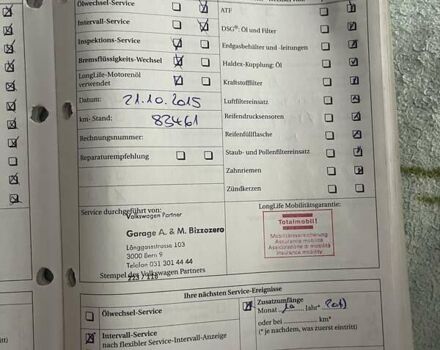 Ölwechsel-Service
Intervall-Service
Inspektions-Service
Bremsflüssigkeits-Wechsel
LongLife-Motorenöl
verwendet
Datum: 21.10.2015
km-Stand: 83461
Rechnungsnummer:
Reparaturempfehlung
ATF
DSG®: Öl und Filter
Erdgasbehälter und -leitungen
Haldex-Kupplung: Öl
Kraftstofffilter
Luftfiltereinsatz
Reifendrucksensoren
Reifenfüllflasche
Staub- und Pollenfiltereinsatz
Zahnriemen
Zündkerzen
Service durchgeführt von:
Volkswagen Partner
Garage A. & M. Bizzozero
Länggassstrasse 103
3000 Bern 9
Telefon 031 301 44 44
Stempel des Volkswagen Partners
LongLife Mobilitätsgarantie:
Totalmobil!
Mobilitätsversicherung
Assurance mobilité
Assicurazione di mobilità
Insurance mobility
Ihre nächsten Service-Ereignisse
Ölwechsel-Service
Intervall-Service
nach flexibler Service-Intervall-Anzeige
Zusatzumfänge
Monat Jahr*
oder bei km*
(* je nachdem, was zuerst eintritt)